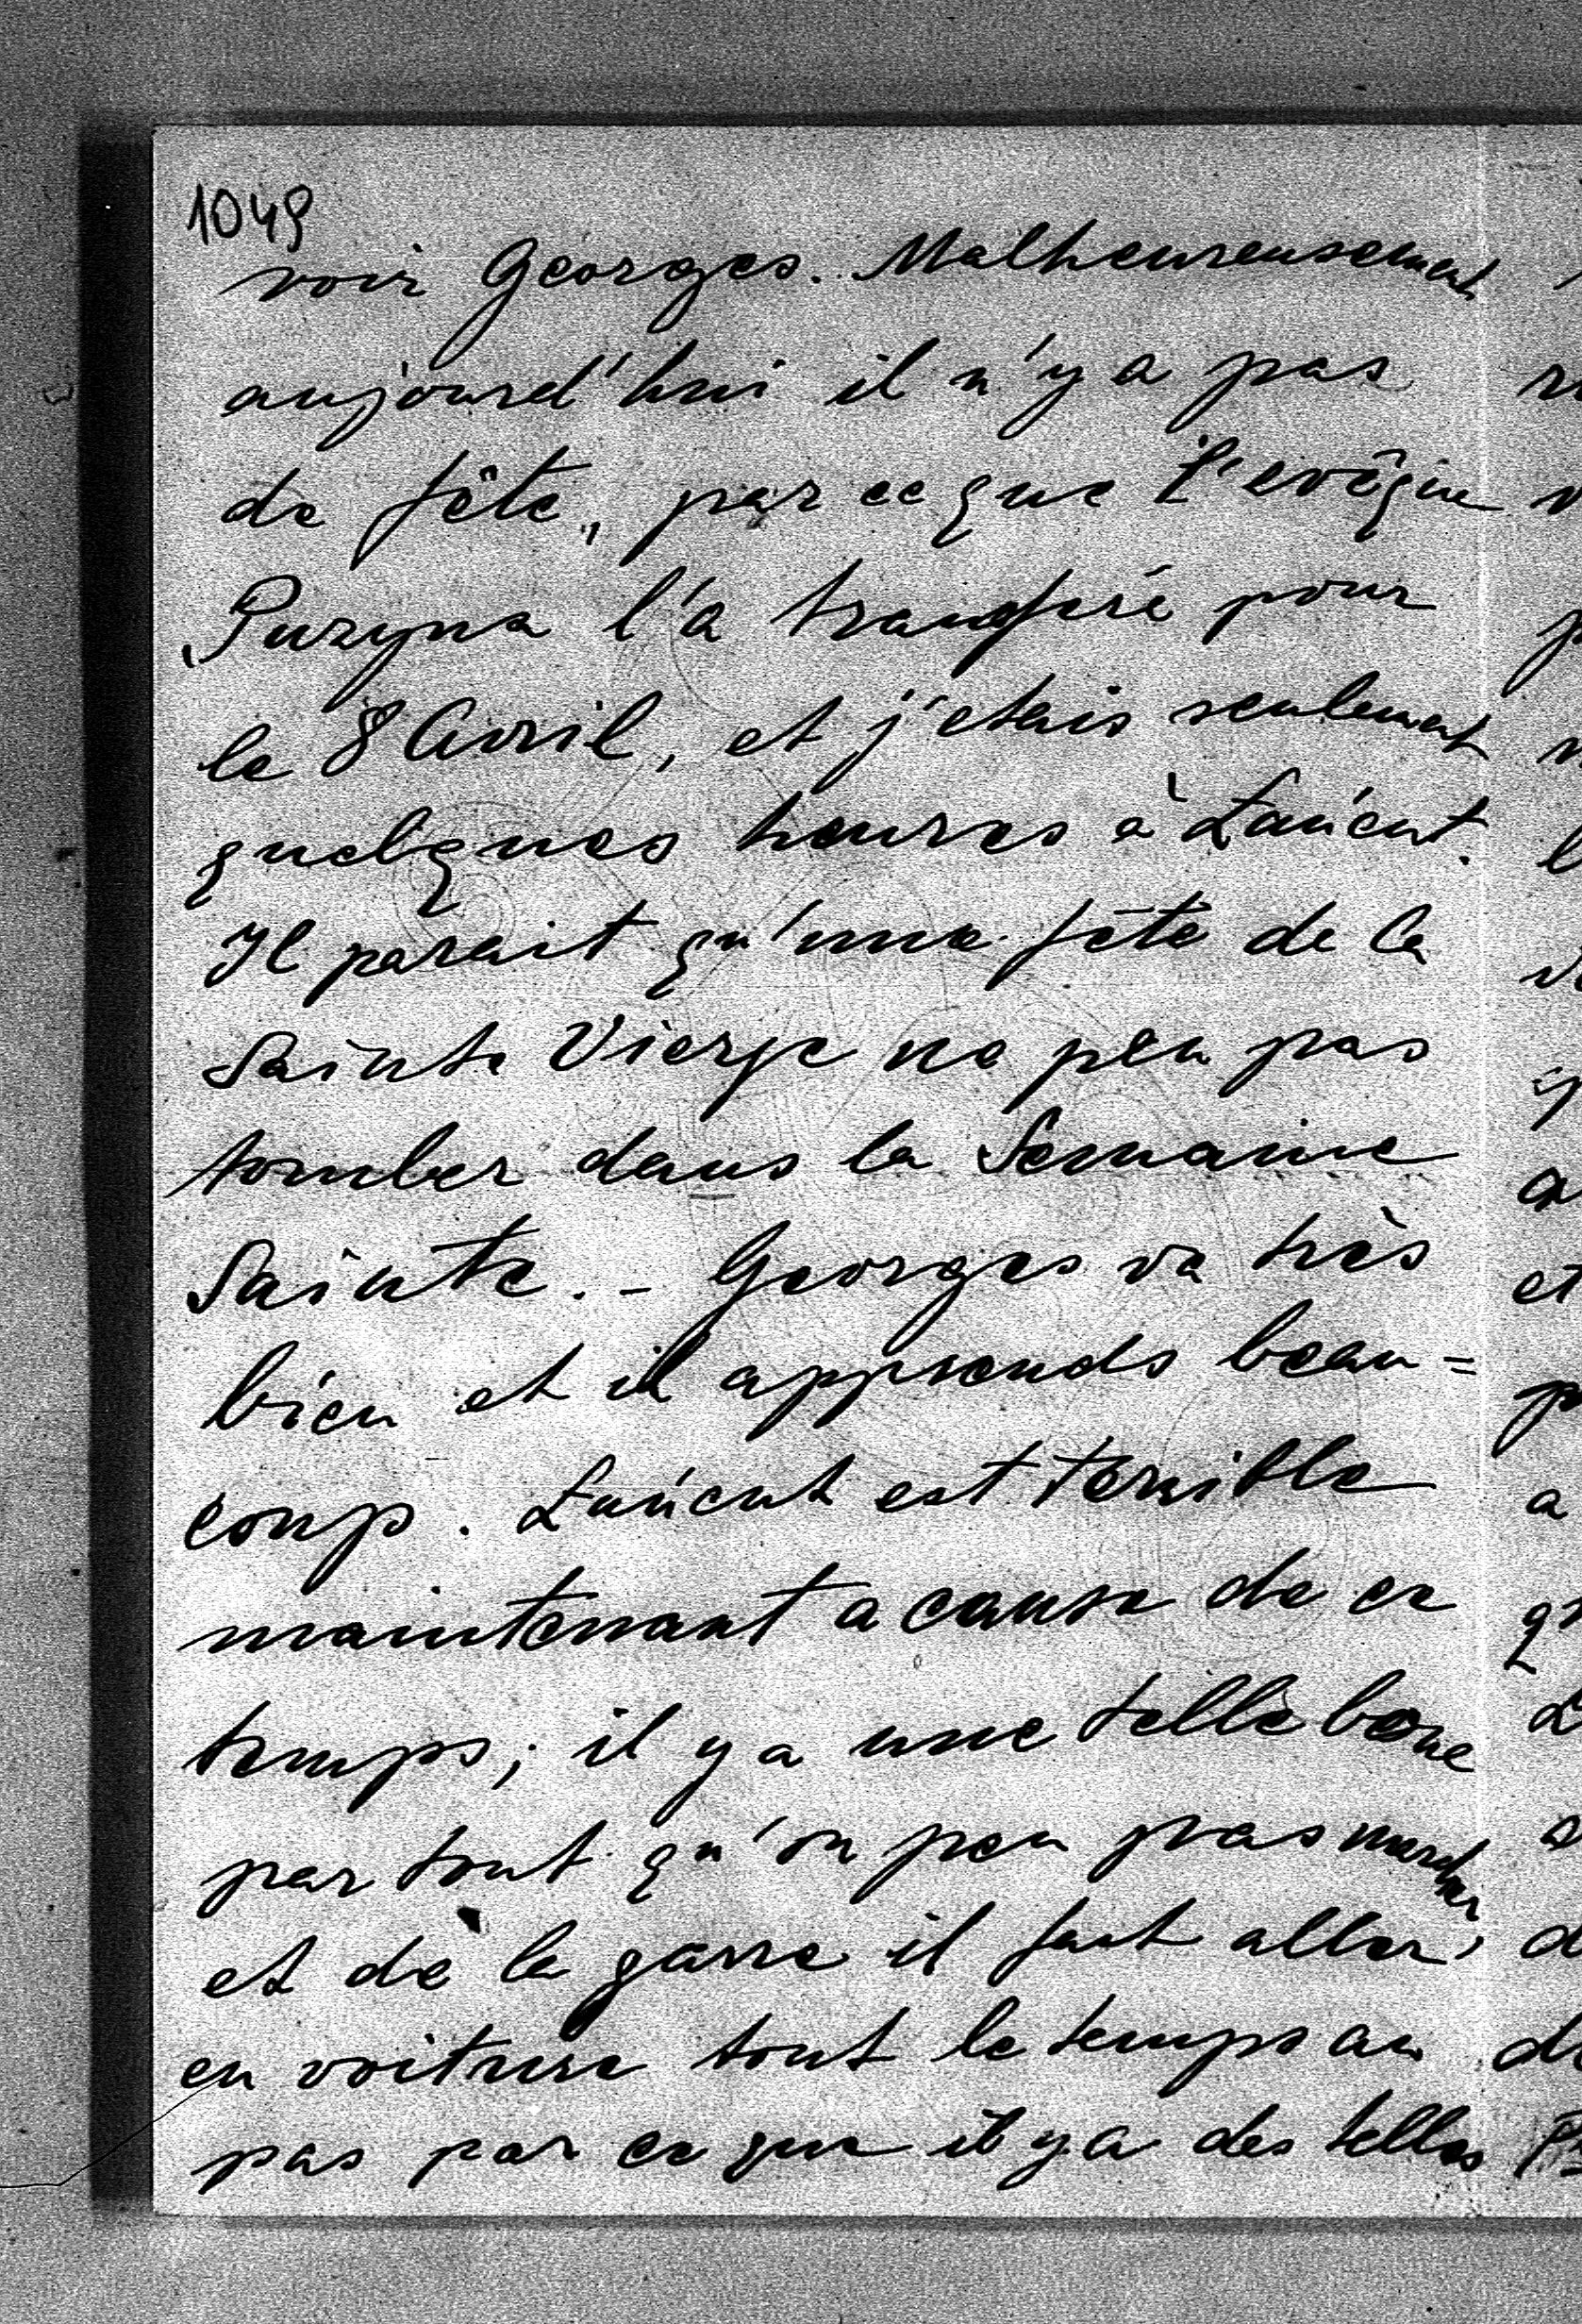 1049
voir Georges. Malheureusement
aujourd'hui il n'y a pas
de fête, par ce que l'evêque
Puzyna l'a transferé pour
le 8 Avril, et j'etais seulement
quelques heures à Łańcut.
Il parait qu'une fête de la
Sainte Vierge ne peu pas
tomber dans la Semaine
Sainte. - Georges va très
bien et il apprends beau=
coup. Łańcut est terrible
maintenant a cause de ce
temps; il y a une telle boue
par tout qu'on peu pas marcher
et de la garre il faut aller
en voiture tout le temps au
pas par ce que il y a des telles